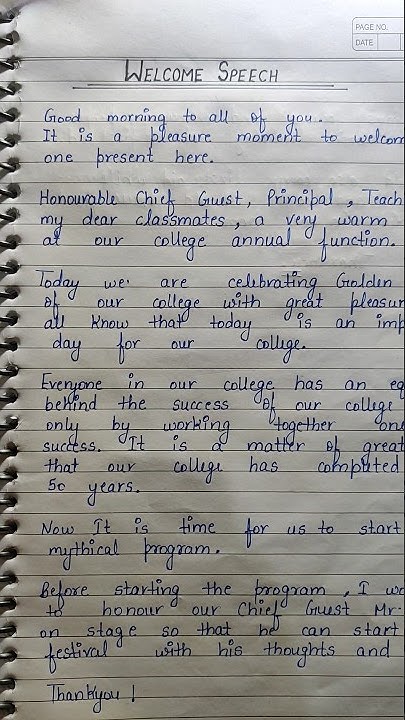 PAGE NO.
DATE
WELCOME SPEECH
Good morning to all of you.
It is a pleasure moment to welcom
one present here.
Honourable Chief Guest, Principal, Teach
my dear classmates, a very warm
at our college annual function.
Today we are celebrating Golden
of our college with great pleasur
all know that today is an imp
day for our college.
Everyone in our college has an eq
behind the success of our college
only by working together one
success. It is a matter of great
that our college has completed
50 years.
Now It is time for us to start
mythical program.
Before starting the program, I wo
to honour our Chief Guest Mr.
on stage so that he can start
festival with his thoughts and
Thankyou!